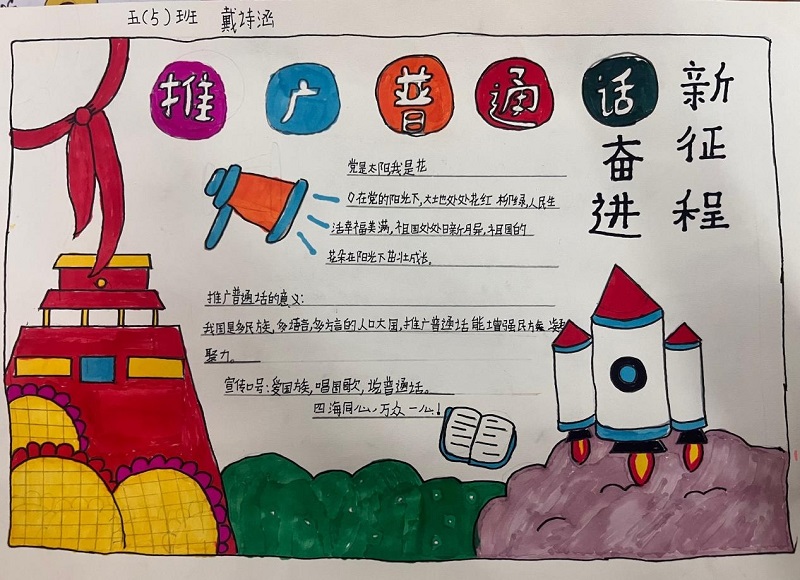 五(5)班 戴诗涵
推广普通话
新征程
奋进
党是太阳我是花
在党的阳光下,大地处处花红柳绿,人民生
活幸福美满,祖国处处日新月异,祖国的
花朵在阳光下茁壮成长。
推广普通话的意义:
我国是多民族,多语言,多方言的人口大国,推广普通话能增强民族凝
聚力。
宣传口号:爱国旗,唱国歌,说普通话。
四海同心,万众一心!